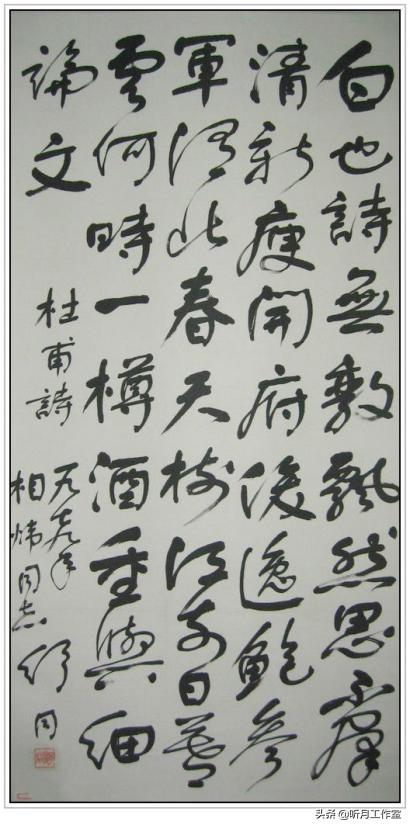 白也詩無敵飄然思不羣
清新庾開府俊逸鮑參
軍渭北春天樹江東日暮
雲何時一樽酒重與細
論文
杜甫詩
一九七九年
相炜同志 舒同
头条 @听月工作室